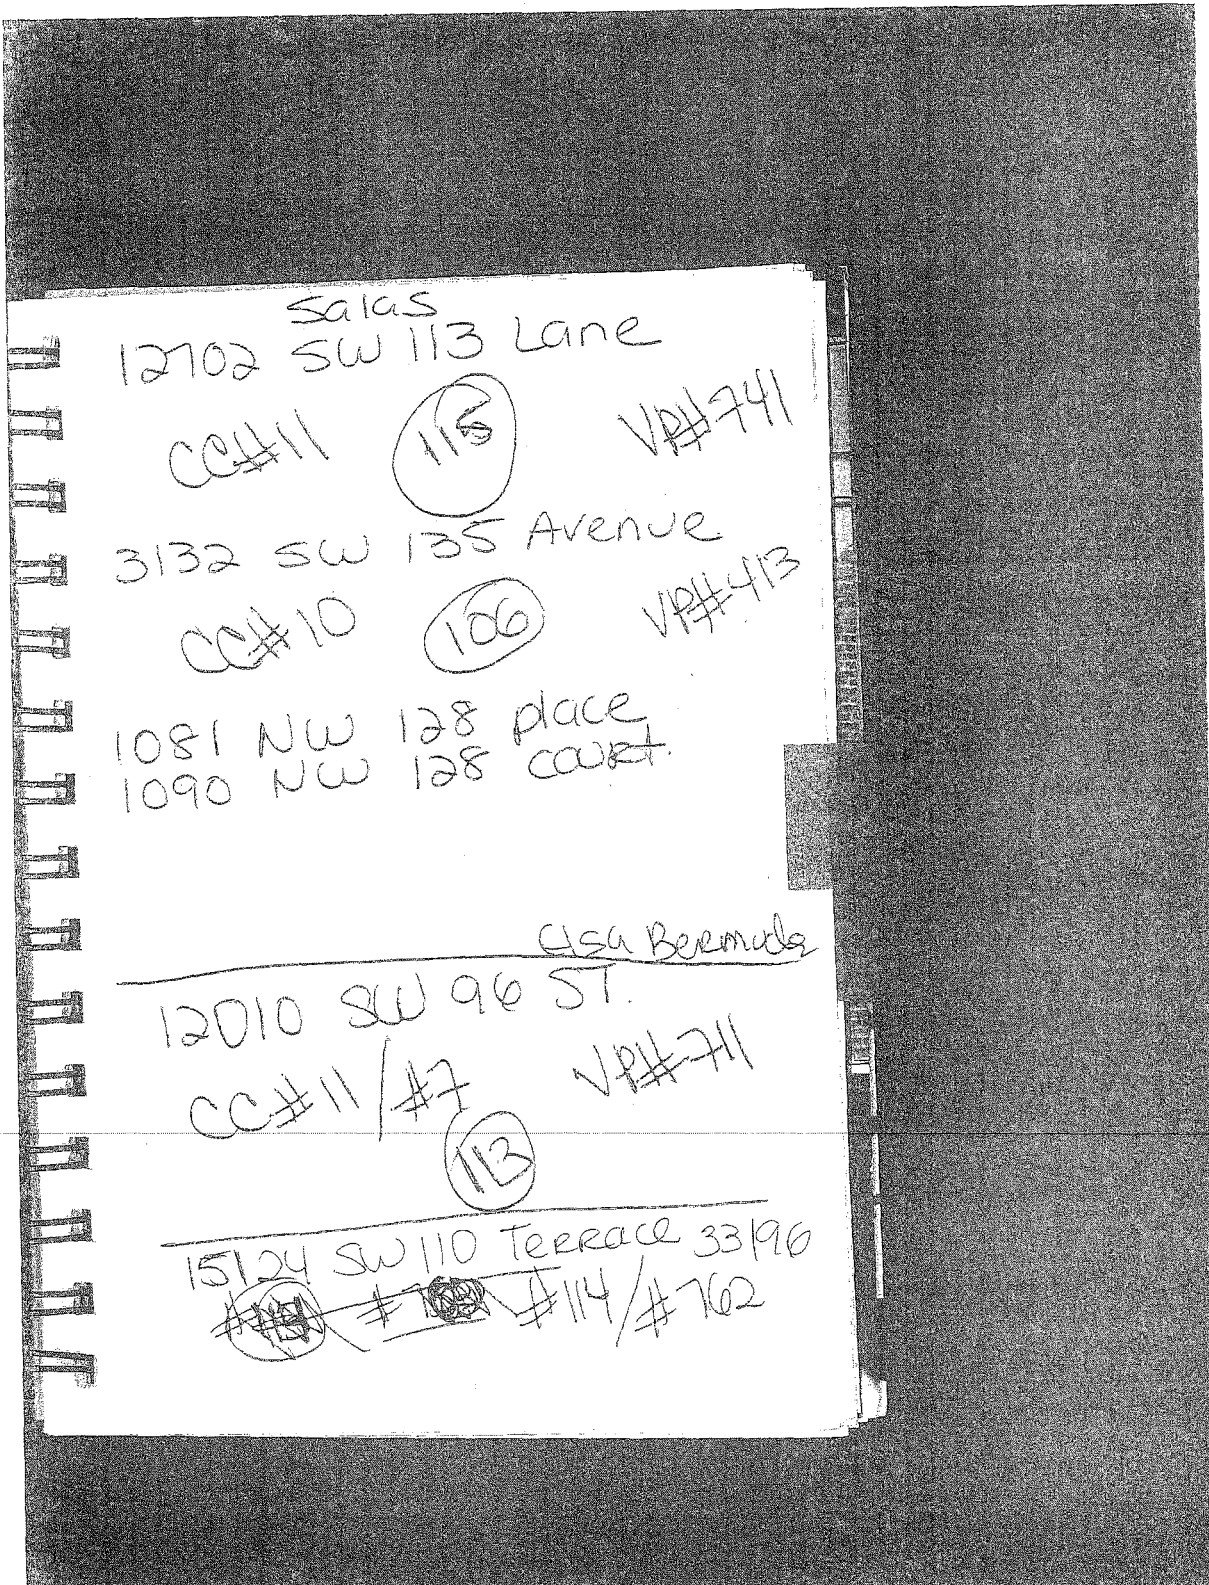 Salas
12702 SW 113 Lane
CC#11 115 VP#741
3132 SW 135 Avenue
CC#10 106 VP#413
1081 NW 128 place
1090 NW 128 court.
Elsa Bermuda
12010 SW 96 ST.
CC#11/#7 VP#711
113
15124 SW 110 Terrace 33196
#114/#762